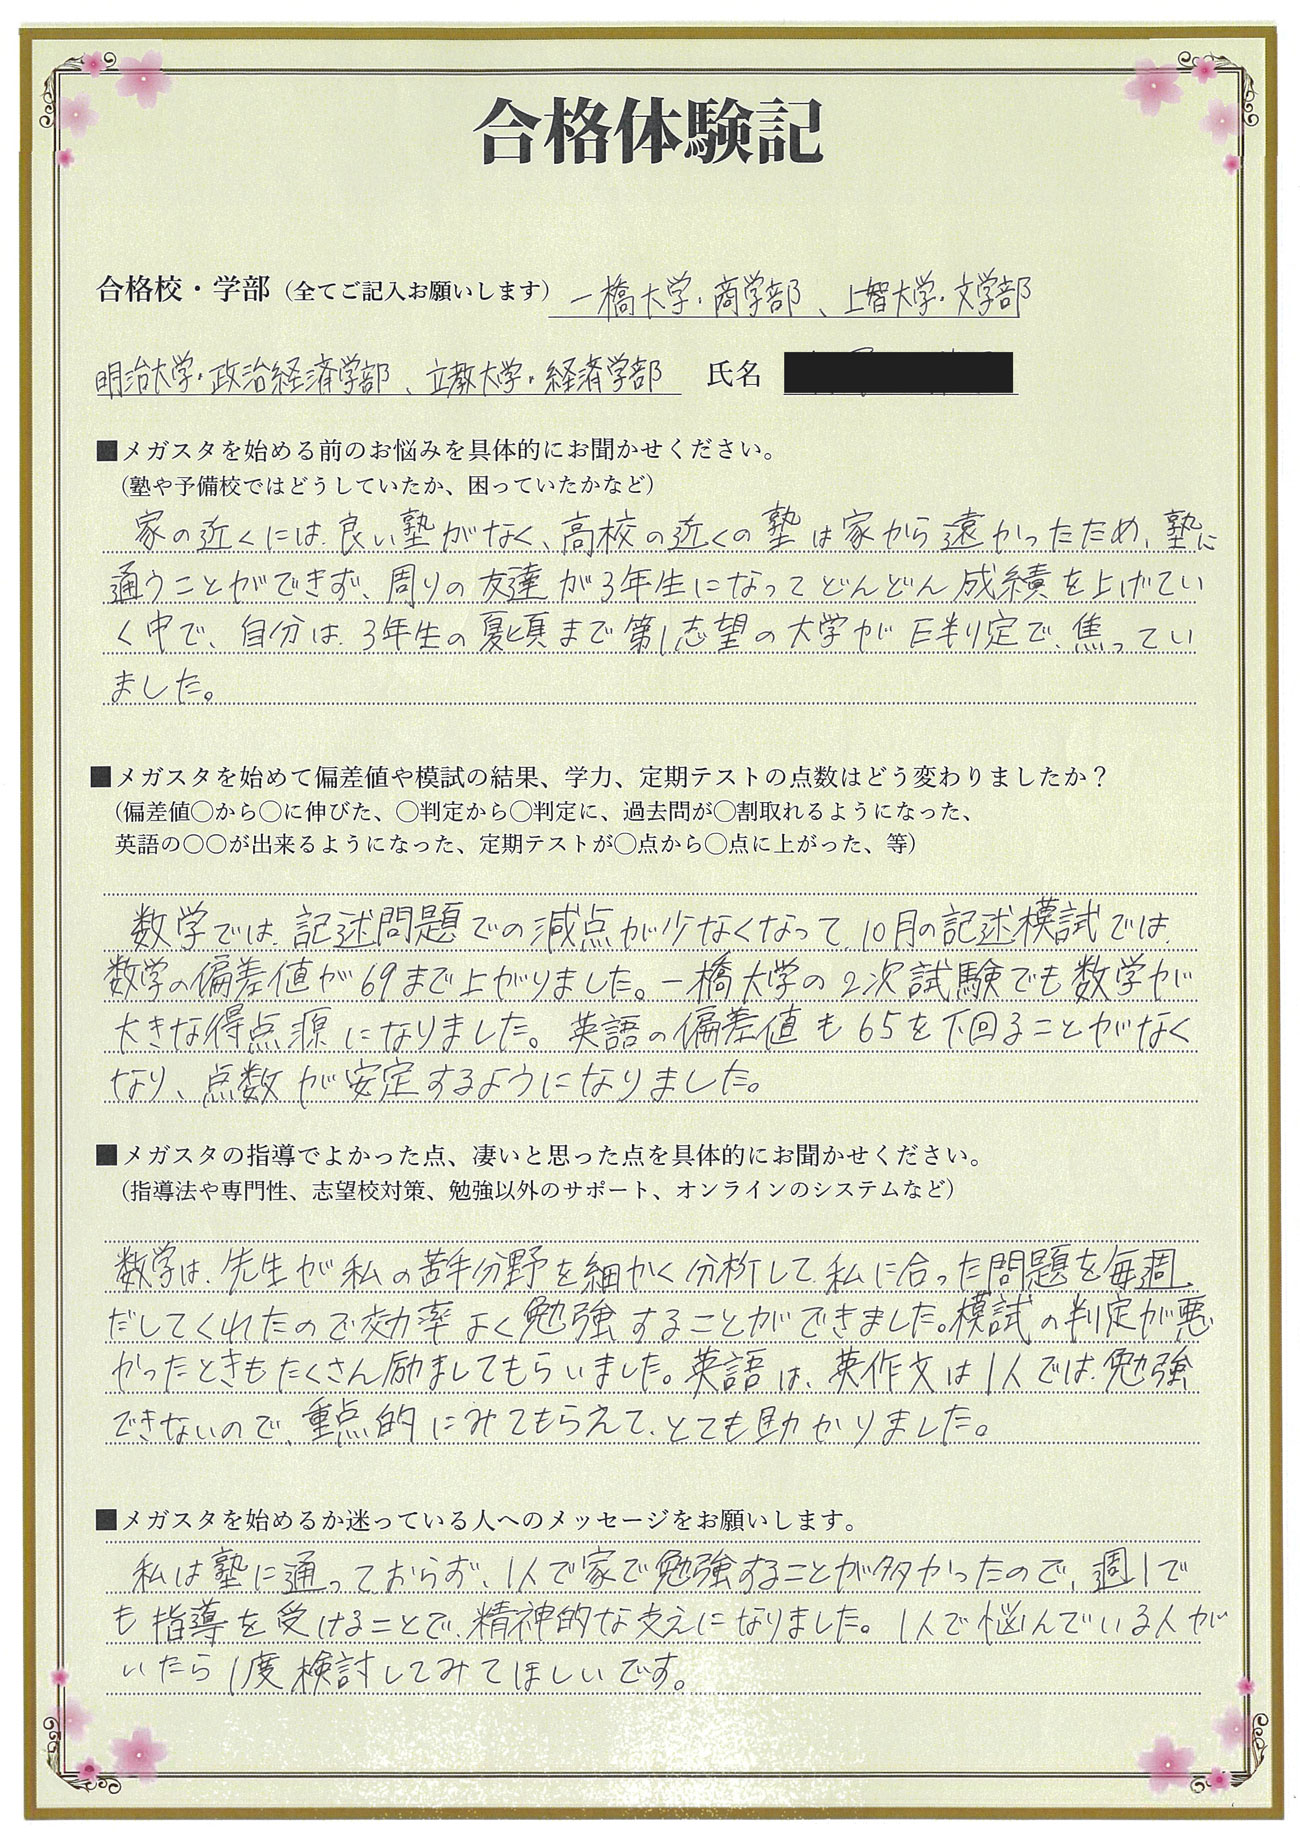 合格体験記
合格校・学部（全てご記入お願いします）一橋大学・商学部、上智大学・文学部
明治大学・政治経済学部、立教大学・経済学部 氏名
■メガスタを始める前のお悩みを具体的にお聞かせください。
（塾や予備校ではどうしていたか、困っていたかなど）
家の近くには良い塾がなく、高校の近くの塾は家から遠かったため、塾に
通うことができず、周りの友達が3年生になってどんどん成績を上げてい
く中で、自分は3年生の夏頃まで第1志望の大学がE判定で、焦ってい
ました。
■メガスタを始めて偏差値や模試の結果、学力、定期テストの点数はどう変わりましたか？
（偏差値〇から〇に伸びた、〇判定から〇判定に、過去問が〇割取れるようになった、
英語の〇〇が出来るようになった、定期テストが〇点から〇点に上がった、等）
数学では、記述問題での減点が少なくなって10月の記述模試では、
数学の偏差値が69まで上がりました。一橋大学の2次試験でも数学が
大きな得点源になりました。英語の偏差値も65を下回ることがなく
なり、点数が安定するようになりました。
■メガスタの指導でよかった点、凄いと思った点を具体的にお聞かせください。
（指導法や専門性、志望校対策、勉強以外のサポート、オンラインのシステムなど）
数学は、先生が私の苦手分野を細かく分析して、私に合った問題を毎週、
だしてくれたので効率よく勉強することができました。模試の判定が悪
かったときもたくさん励ましてもらいました。英語は、英作文は1人では勉強
できないので、重点的にみてもらえて、とても助かりました。
■メガスタを始めるか迷っている人へのメッセージをお願いします。
私は塾に通っておらず、1人で家で勉強することが多かったので、週1で
も指導を受けることで、精神的な支えになりました。1人で悩んでいる人が
いたら1度検討してみてほしいです。